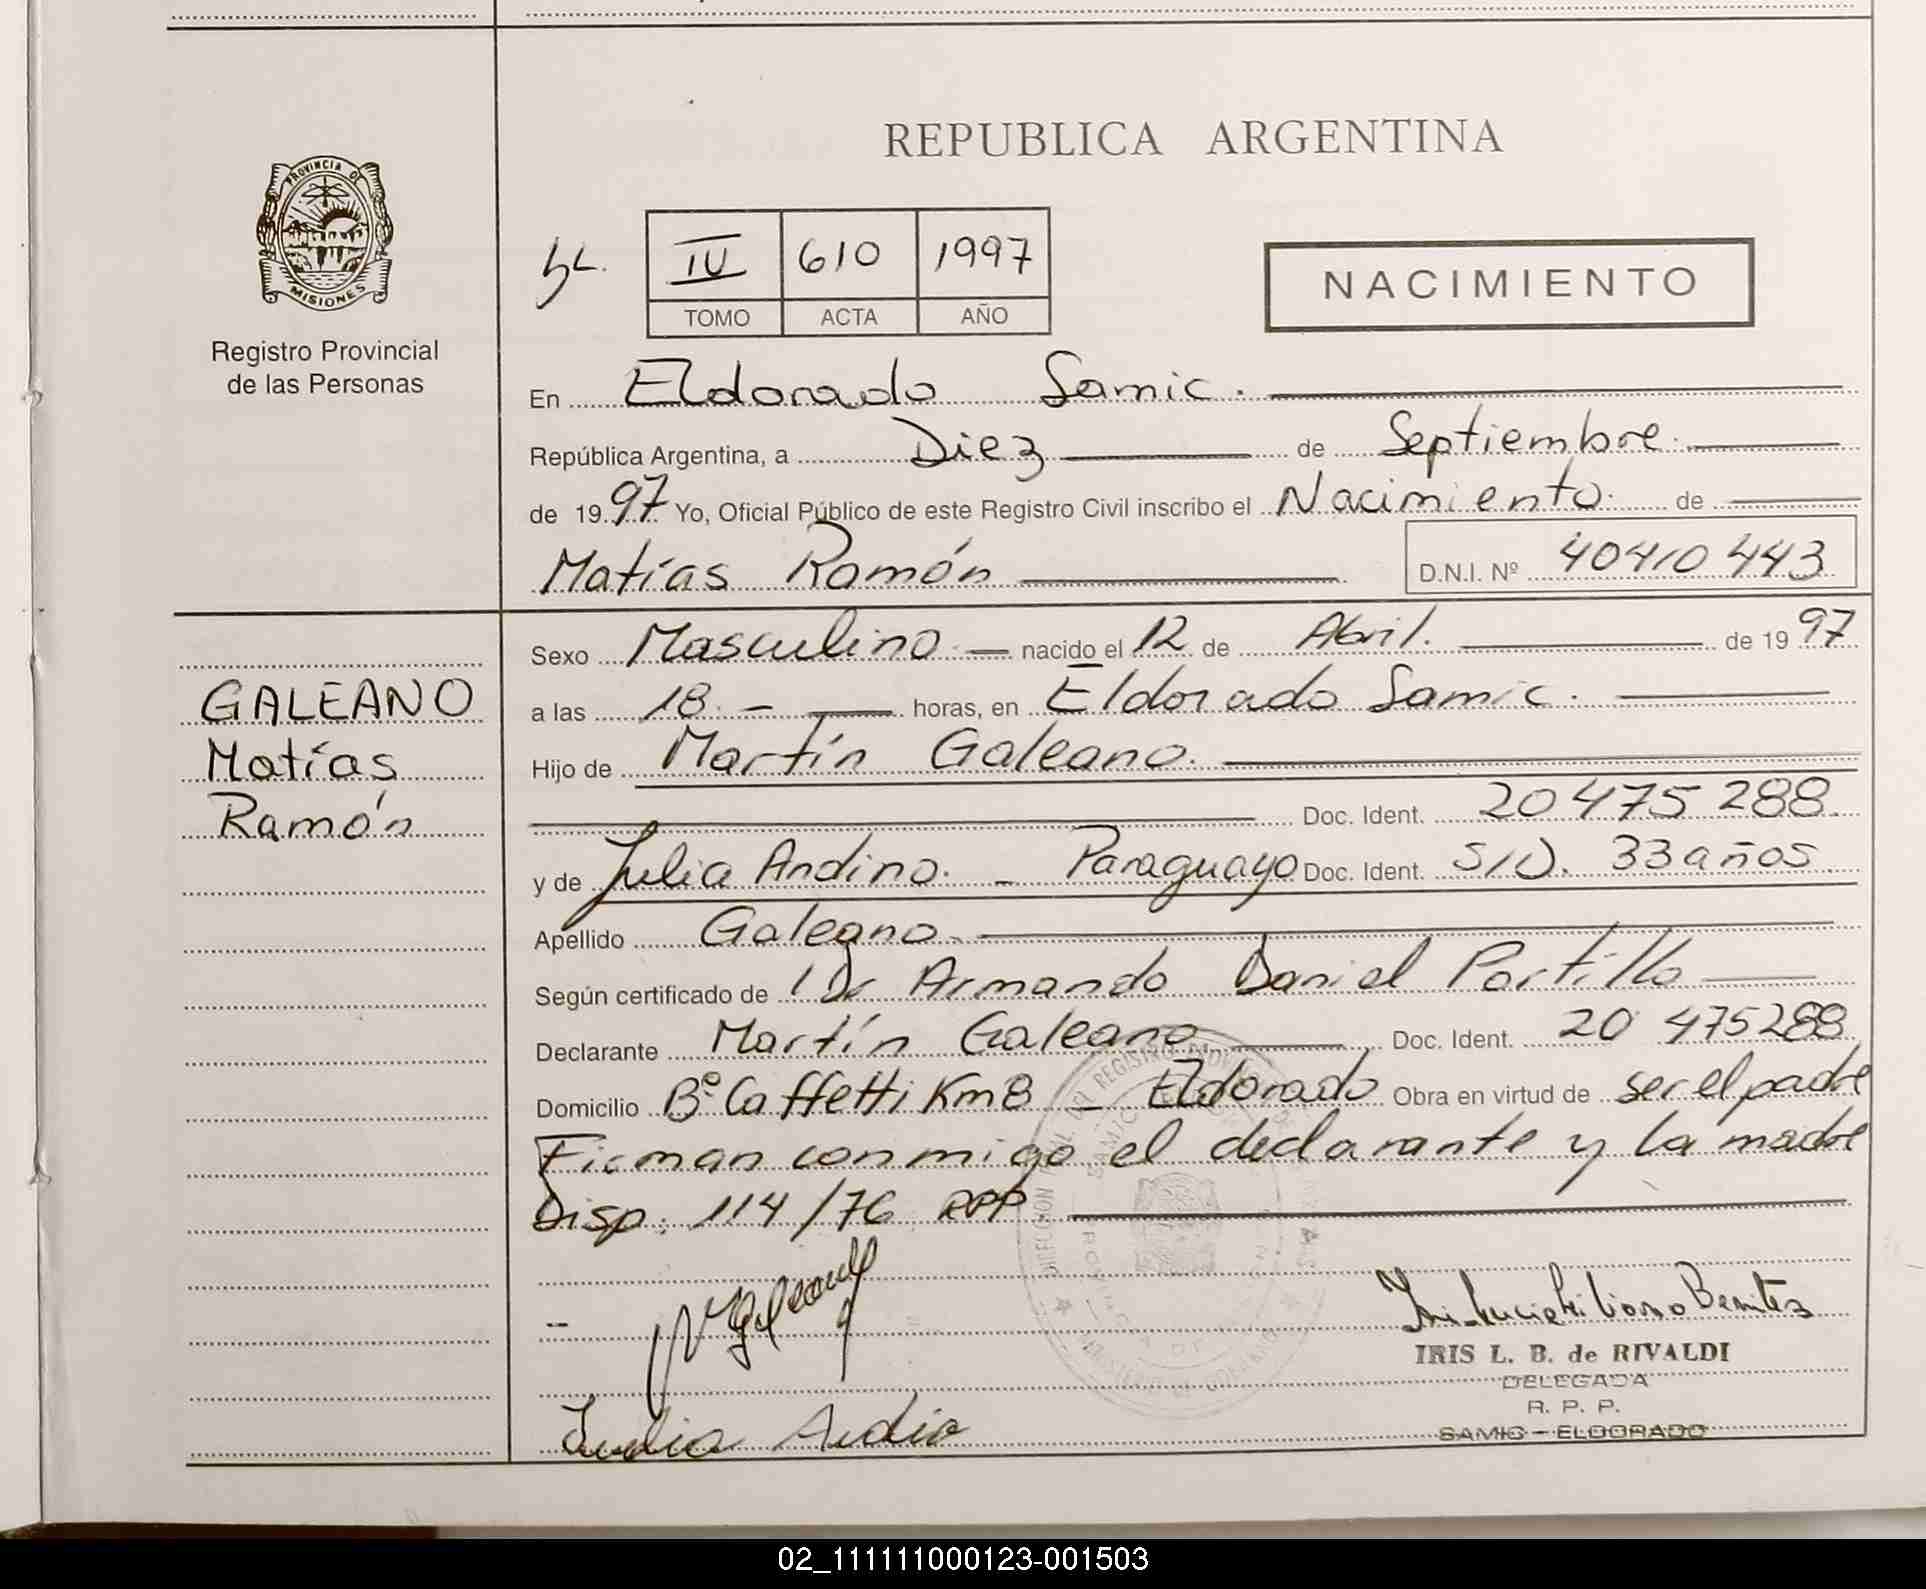 REPUBLICA ARGENTINA
PROVINCIA DE
MISIONES
Registro Provincial
de las Personas
IV 610 1997
TOMO ACTA AÑO
NACIMIENTO
En Eldorado Samic.
República Argentina, a Diez de Septiembre.
de 1997 Yo, Oficial Público de este Registro Civil inscribo el Nacimiento. de
Matías Ramón D.N.I. Nº 40410443
GALEANO
Matías
Ramón
Sexo Masculino nacido el 12 de Abril. de 1997
a las 18. - horas, en Eldorado Samic.
Hijo de Martín Galeano.
Doc. Ident. 20475288.
y de Julia Andino. - Paraguayo Doc. Ident. S/D. 33 años
Apellido Galeano.
Según certificado de Dr Armando Daniel Portillo
Declarante Martín Galeano Doc. Ident. 20 475288
Domicilio Bº Caffetti Km8 - Eldorado Obra en virtud de ser el padre
Firman conmigo el declarante y la madre
Disp. 114/76 RPP
IRIS L. B. de RIVALDI
DELEGADA
R. P. P.
SAMIC - ELDORADO
Julia Andio
02_111111000123-001503